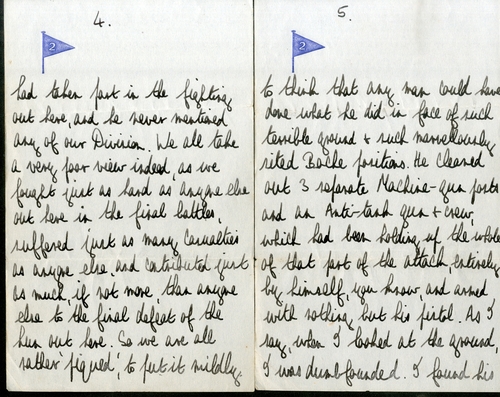 4.
2
had taken part in the fighting
out here, and he never mentioned
any of our Division. We all take
a very poor view indeed, as we
fought just as hard as anyone else
out here in the final battles,
suffered just as many casualties
as anyone else, and contributed just
as much, if not more, than anyone
else to the final defeat of the
hun out here. So we are all
rather 'piqued', to put it mildly.
5.
2
to think that any man could have
done what he did in face of such
terrible ground & such marvellously
sited Boche positions. He cleaned
out 3 separate Machine-gun posts
and an Anti-tank gun & crew,
which had been holding up the whole
of that part of the attack, entirely
by himself, you know, and armed
with nothing but his pistol. As I
say, when I looked at the ground,
I was dumbfounded. I found his